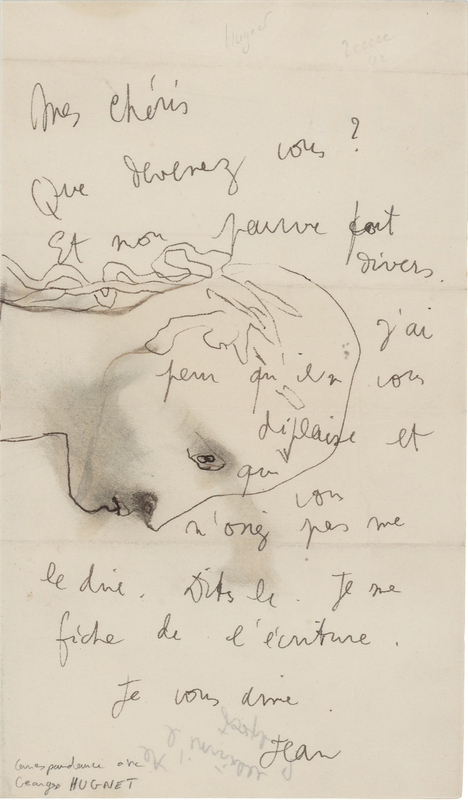 Hugnet
Mes chéris
Que devenez vous ?
Et mon pauvre fait
divers.
j'ai
peur qu'il vous
déplaise et
que
vous
n'osiez pas me
le dire. Dites le. Je me
fiche de l'écriture.
Je vous aime
Jean
Correspondance avec
Georges HUGNET